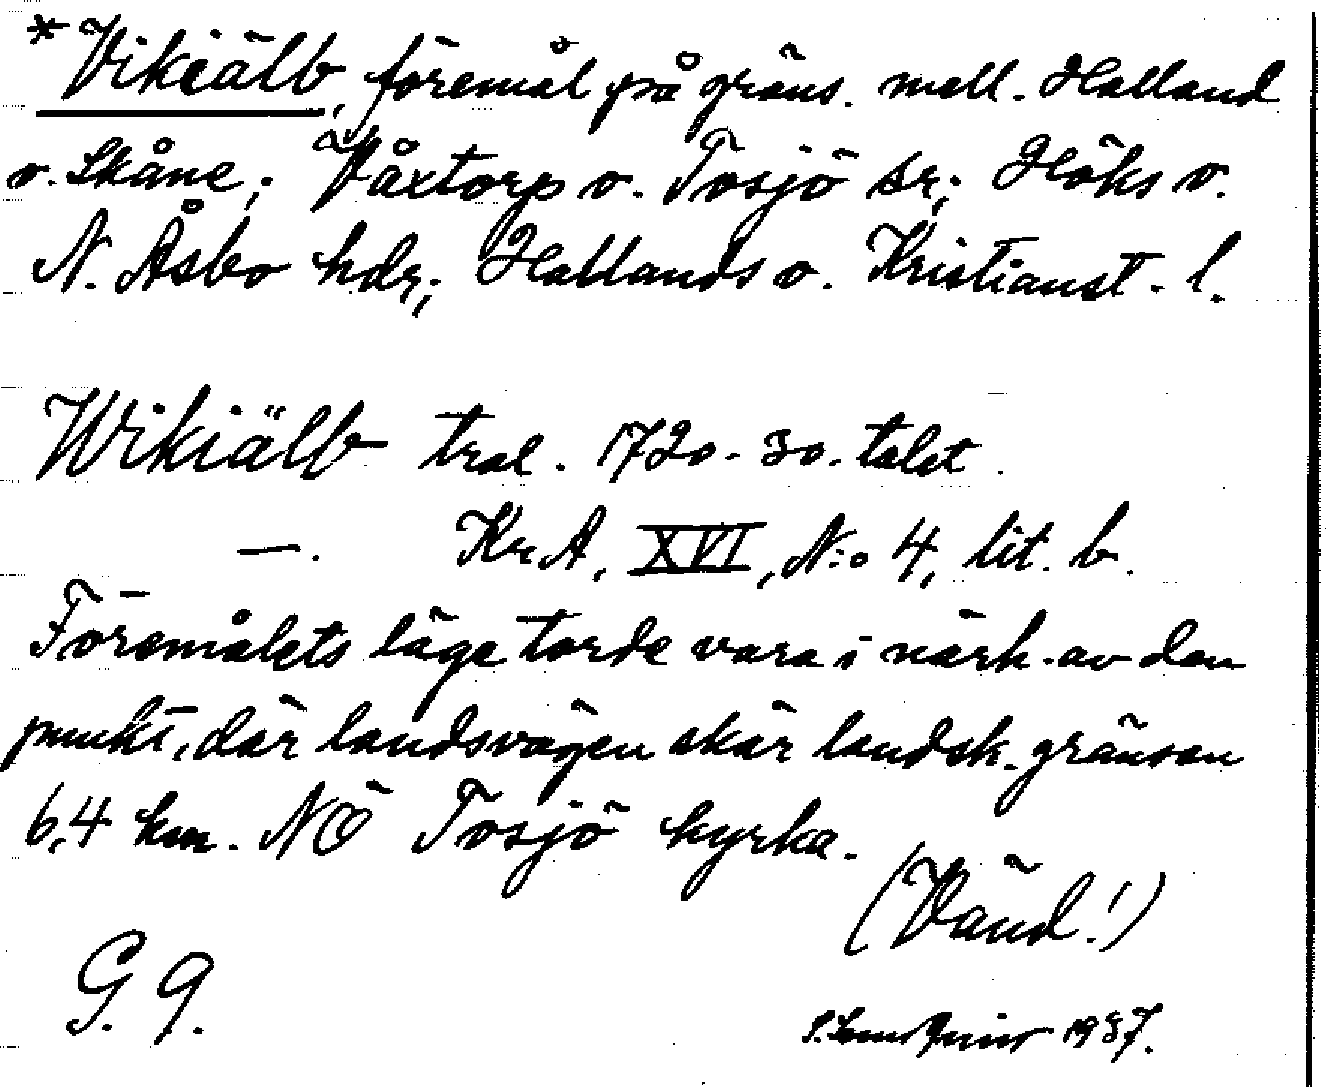 *Vikiälb, föremål på gräns. mell. Halland
o. Skåne; Våxtorp o. Tosjö sr; Höks o.
N. Åsbo hdr; Hallands o. Kristianst. l.
Wikiälb tral. 1720-30-talet.
—. KrA, XVI, N:o 4, lit. b.
Föremålets läge torde vara i närh. av den
punkt, där landsvägen skär landsk.gränsen
6,4 km. NÖ Tosjö kyrka.
(Vänd!)
G. 9.
1937.